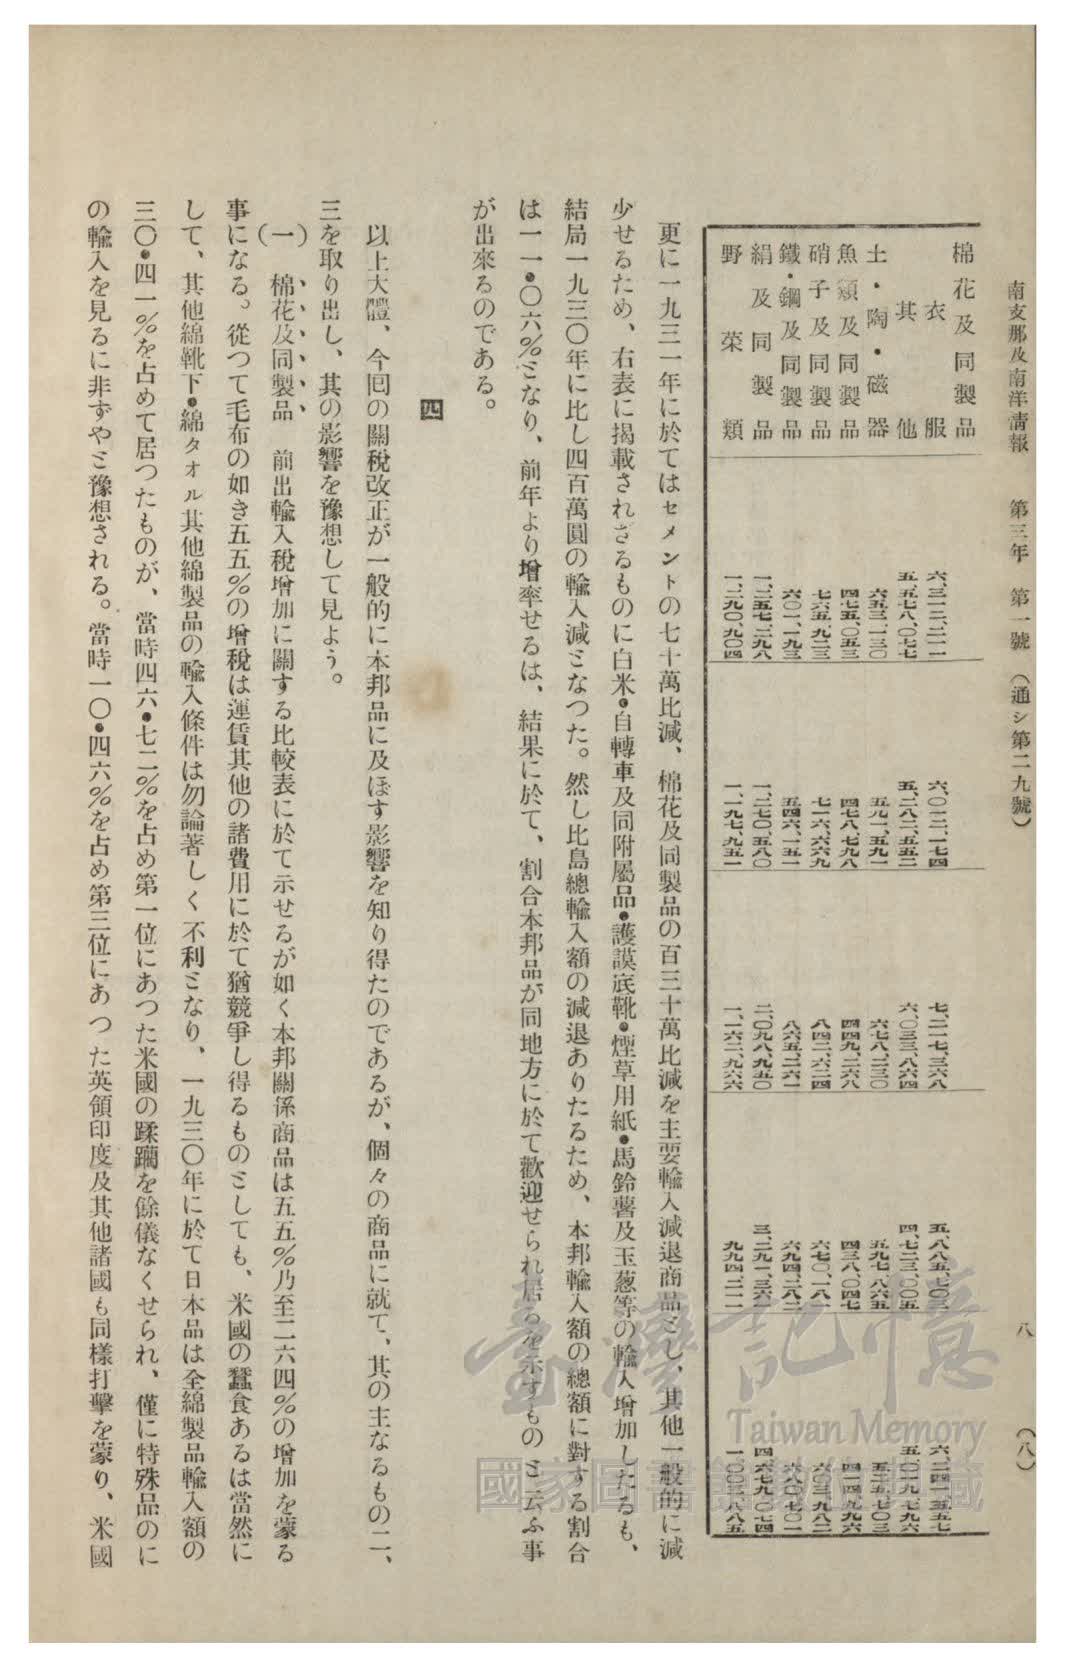 南支那及南洋淸報　第三年　第一號　（通シ第二九號）　八　（八）
棉花及同製品　六、三一二、二一一　六、〇一二、一七四　七、二一七、三六八　五、八八五、七〇三　六、二四一、五五七
衣服
其他　五、五七八、〇七七　五、二八二、五五二　六、〇三三、八六四　四、七二三、〇〇五　五、〇一九、七九六
土・陶・磁器　六五三、一三〇　五九一、五九一　六七八、二三〇　五九七、八六五　五二五、七〇三
魚類及同製品　四七五、〇五三　四七八、七九八　四四九、二六八　四三八、〇四七　四一四、四九六
硝子及同製品　七六五、九二三　七一六、六六九　八四二、六二四　六七〇、一八一　六〇三、九八二
鐵・鋼及同製品　六〇一、一九三　五四六、一五一　八六五、二六一　六九四、二八二　六八〇、七〇一
絹及同製品　一、二五七、二九八　一、二七〇、五八〇　二、〇九八、九五〇　三、二九一、三六一　四、六七九、〇七四
野菜類　一、二九〇、九〇四　一、一九七、九五一　一、一六二、九六六　九九四、二一一　一、〇〇三、八八五
更に一九三一年に於てはセメントの七十萬比減、棉花及同製品の百三十萬比減を主要輸入減退商品とし、其他一般的に減
少せるため、右表に揭載されざるものに白米・自轉車及同附屬品・護謨底靴・煙草用紙・馬鈴薯及玉葱等の輸入增加したるも、
結局一九三〇年に比し四百萬圓の輸入減となつた。然し比島總輸入額の減退ありたるため、本邦輸入額の總額に對する割合
は一一・〇六％となり、前年より增率せるは、結果に於て、割合本邦品が同地方に於て歡迎せられ居るを示すものと云ふ事
が出來るのである。
四
以上大體、今囘の關稅改正が一般的に本邦品に及ぼす影響を知り得たのであるが、個々の商品に就て、其の主なるもの二、
三を取り出し、其の影響を豫想して見よう。
（一）　棉花及同製品　前出輸入稅增加に關する比較表に於て示せるが如く本邦關係商品は五五％乃至二六四％の增加を蒙る
事になる。從つて毛布の如き五五％の增稅は運賃其他の諸費用に於て猶競爭し得るものとしても、米國の蠶食あるは當然に
して、其他綿靴下・綿タオル其他綿製品の輸入條件は勿論著しく不利となり、一九三〇年に於て日本品は全綿製品輸入額の
三〇・四一％を占めて居つたものが、當時四六・七二％を占め第一位にあつた米國の蹂躙を餘儀なくせられ、僅に特殊品のに
の輸入を見るに非ずやと豫想される。當時一〇・四六％を占め第三位にあつた英領印度及其他諸國も同樣打擊を蒙り、米國
臺灣記憶
Taiwan Memory
國家圖書館